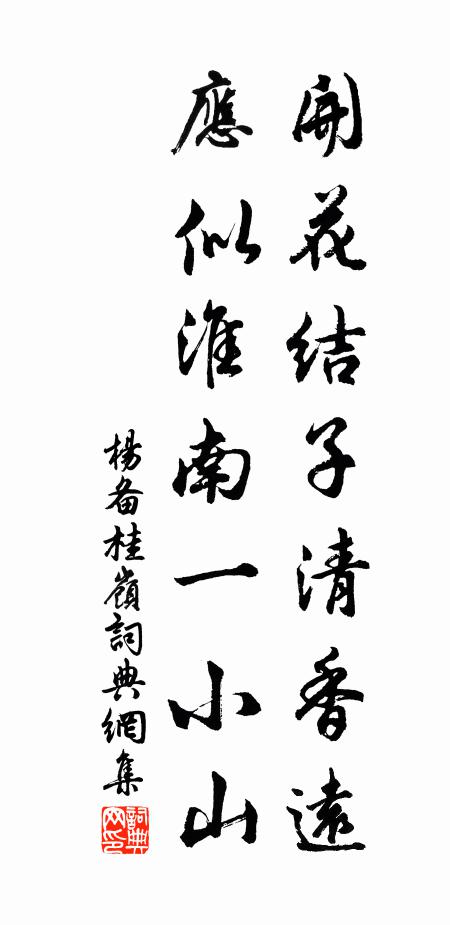 開花結子清香遠
應似淮南一小山
楊备桂嶺詞典網集
詞典網印